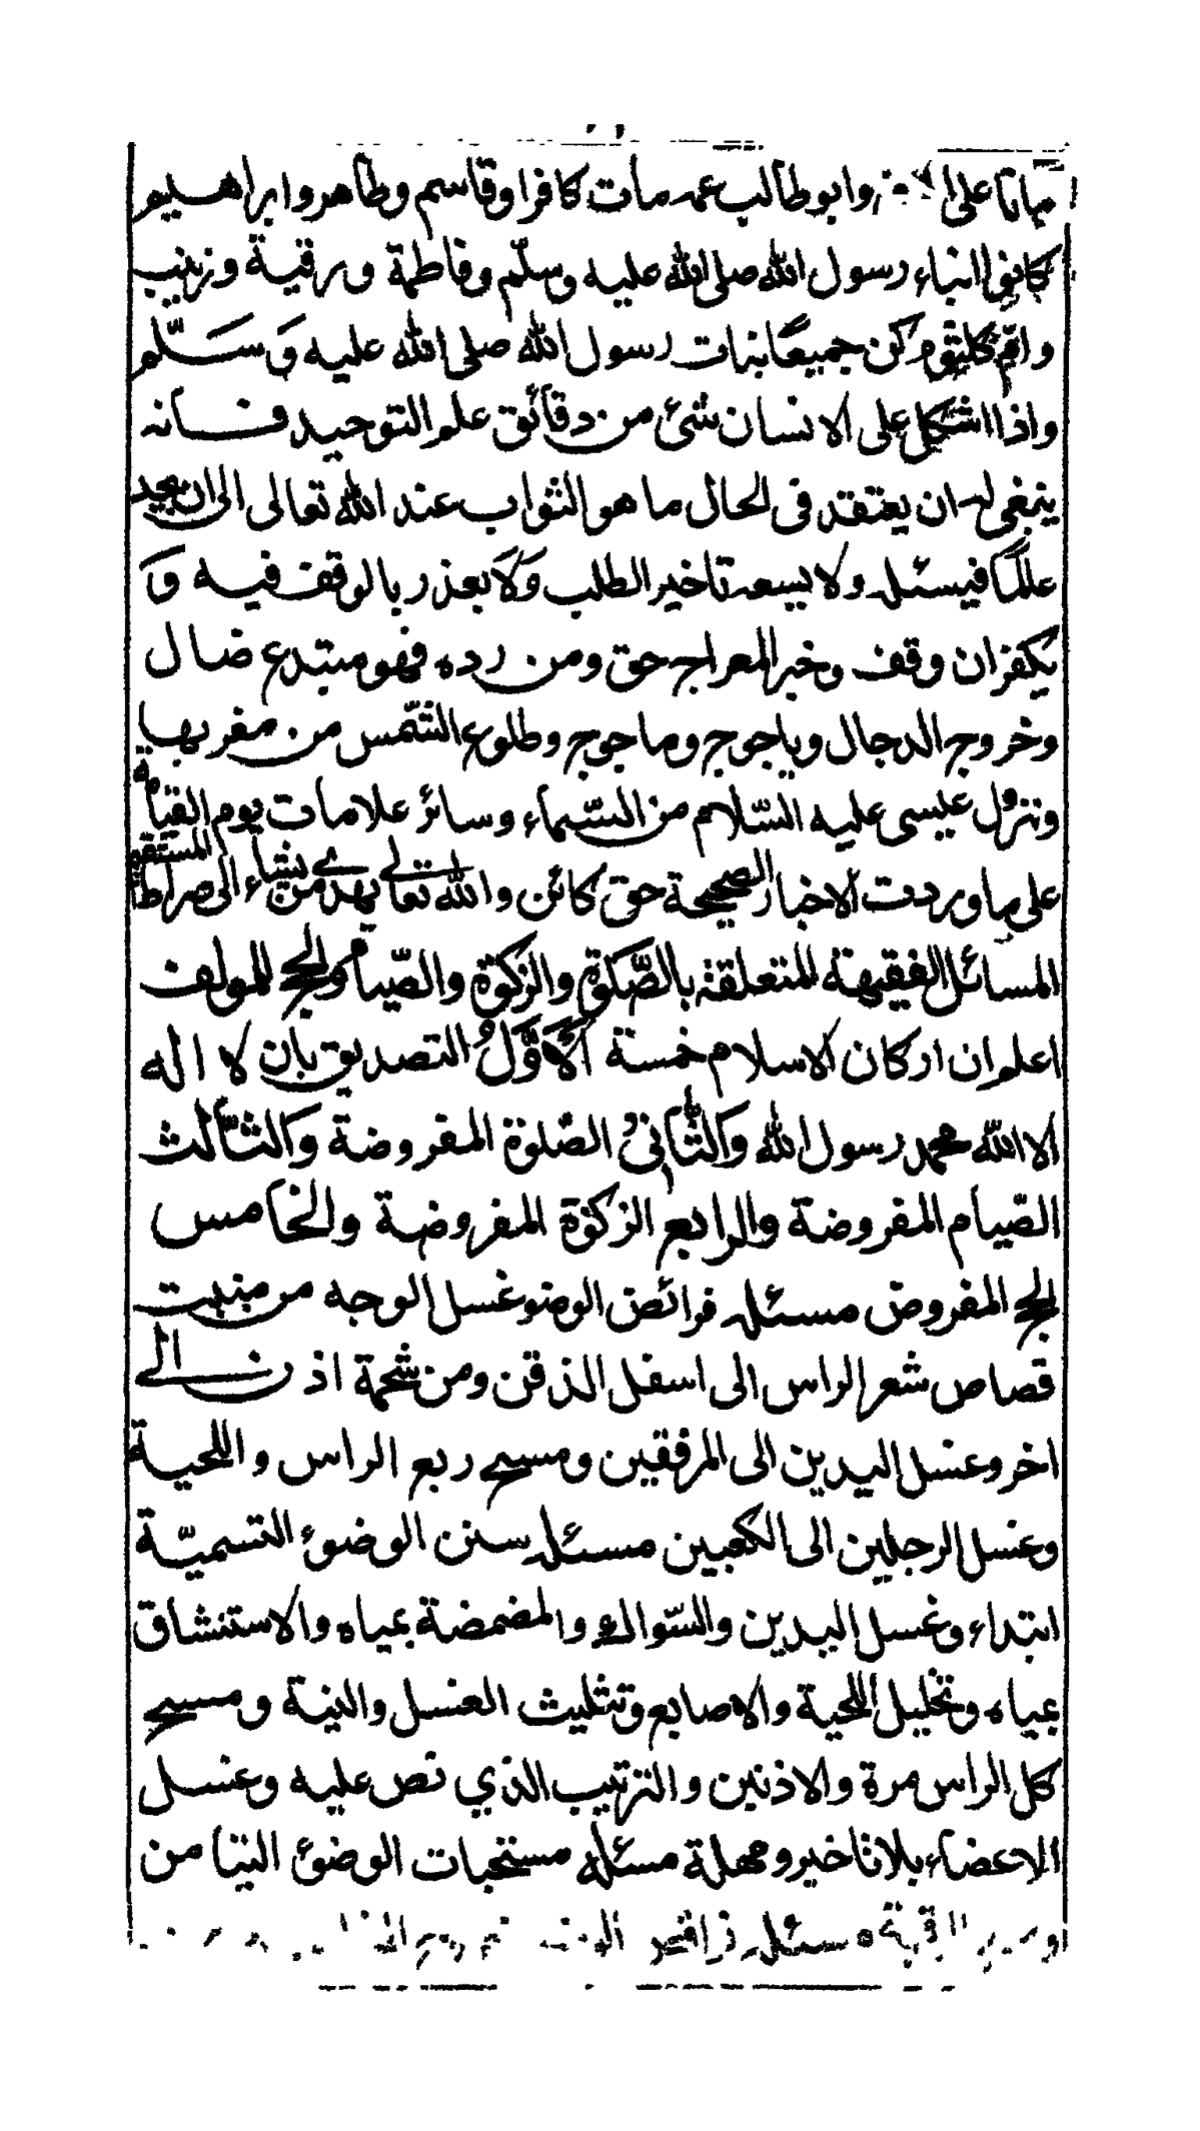 ماتا على وابو طالب عمه مات كافرا وقاسم وطاهر وابراهيم
كانوا ابناء رسول الله صلى الله عليه وسلّم وفاطمة ورقية وزينب
وامّ كلثوم كن جميعًا بنات رسول الله صلى الله عليه وَسَلّم
واذا اشكل على الانسان شئ من دقائق علم التوحيد فانه
ينبغى له ان يعتقد فى الحال ما هو الثواب عند الله تعالى الى ان يجد
عالمًا فيسئله ولا يسعه تاخير الطلب وَلَا يعذر بالوقف فيه وَ
يكفر ان وقف وخبر المعراج حق ومن رده فهو مبتدع ضال
وخروج الدجال وياجوج وماجوج وطلوع الشّمس من مغربها
ونزول عيسى عليه السّلام من السّماء وسائر علامات يوم القيامة
على ما وردت الاخبار الصحيحة حق كائن والله تعالى يهدى من يشاء الى صراط المستقيم
المسائل الفقيهة المتعلقة بالصَّلوٰة والزكوٰة والصّيام والحج للمولف
اعلم ان اركان الاسلام خمسة اَلْاَوَّلُ التصديق بان لا اله
الا الله محمد رسول الله وَالثَّانىُ الصّلوة المفروضة وَالثّالث
الصّيام المفروضة والرابع الزكوٰة المفروضة والخامس
الحج المفروض مسئله فرائض الوضو غسل الوجه من منبت
قصاص شعر الراس الى اسفل الذقن ومن شحمة اذن الى
اخر وغسل اليدين الى المرفقين ومسح ربع الراس واللحية
وغسل الرجلين الى الكعبين مسئله سنن الوضوئ التسميّة
ابتداء وغسل اليدين والسّواك والمضمضة بمياه والاستنشاق
بمياه وتخليل اللحية والاصابع وتثليث الغسل والنية ومسح
كل الراس مرة والاذنين والترتيب الذي نص عليه وغسل
الاعضاء بلا تاخير ومهلة مسئله مستحبات الوضوئ التيامن
الرقبة مسئله